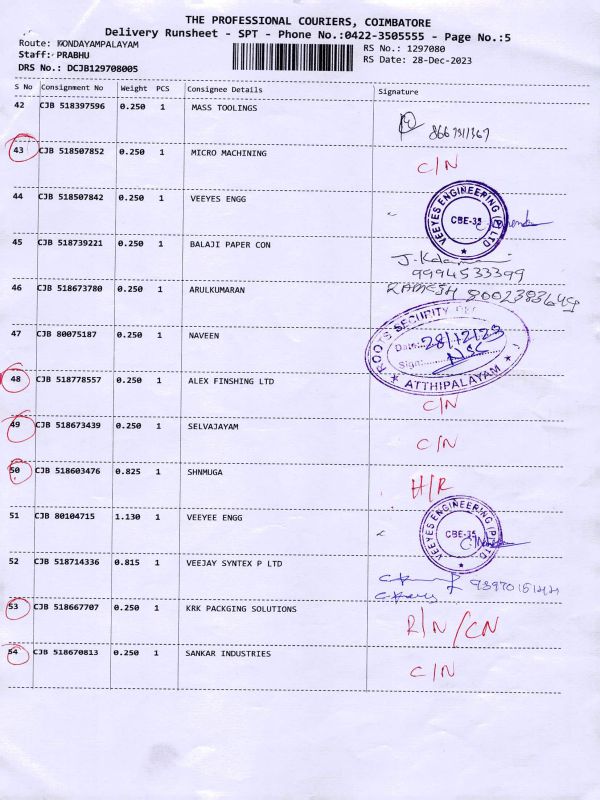 THE PROFESSIONAL COURIERS, COIMBATORE
Delivery Runsheet - SPT - Phone No.:0422-3505555 - Page No.:5
Route: KONDAYAMPALAYAM
RS No.: 1297080
Staff: PRABHU
RS Date: 28-Dec-2023
DRS No.: DCJB129708005
S No Consignment No Weight PCS Consignee Details Signature
42 CJB 518397596 0.250 1 MASS TOOLINGS
43 CJB 518507852 0.250 1 MICRO MACHINING C/N
44 CJB 518507842 0.250 1 VEEYES ENGG
VEEYES ENGINEERING (P) LTD
CBE-35
45 CJB 518739221 0.250 1 BALAJI PAPER CON
9994533399
46 CJB 518673780 0.250 1 ARULKUMARAN
RAMESH
47 CJB 80075187 0.250 1 NAVEEN
ROOTS SECURITY
Date: 28/12/23
Sign:
ATTHIPALAYAM
48 CJB 518778557 0.250 1 ALEX FINSHING LTD C/N
49 CJB 518673439 0.250 1 SELVAJAYAM C/N
50 CJB 518603476 0.825 1 SHNMUGA H/R
51 CJB 80104715 1.130 1 VEEYEE ENGG
VEEYES ENGINEERING (P) LTD
CBE-35
52 CJB 518714336 0.815 1 VEEJAY SYNTEX P LTD
53 CJB 518667707 0.250 1 KRK PACKGING SOLUTIONS R/N/CN
54 CJB 518670813 0.250 1 SANKAR INDUSTRIES C/N